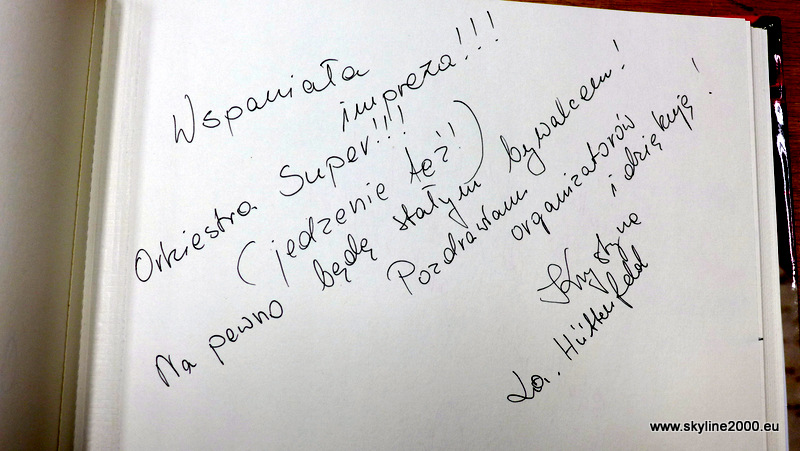 Wspaniała
impreza!!!
Orkiestra Super!!!
(jedzenie też!!)
Na pewno będę stałym bywalcem!
Pozdrawiam organizatorów
i dziękuję!
Krystyna
Hüttenfeld
www.skyline2000.eu